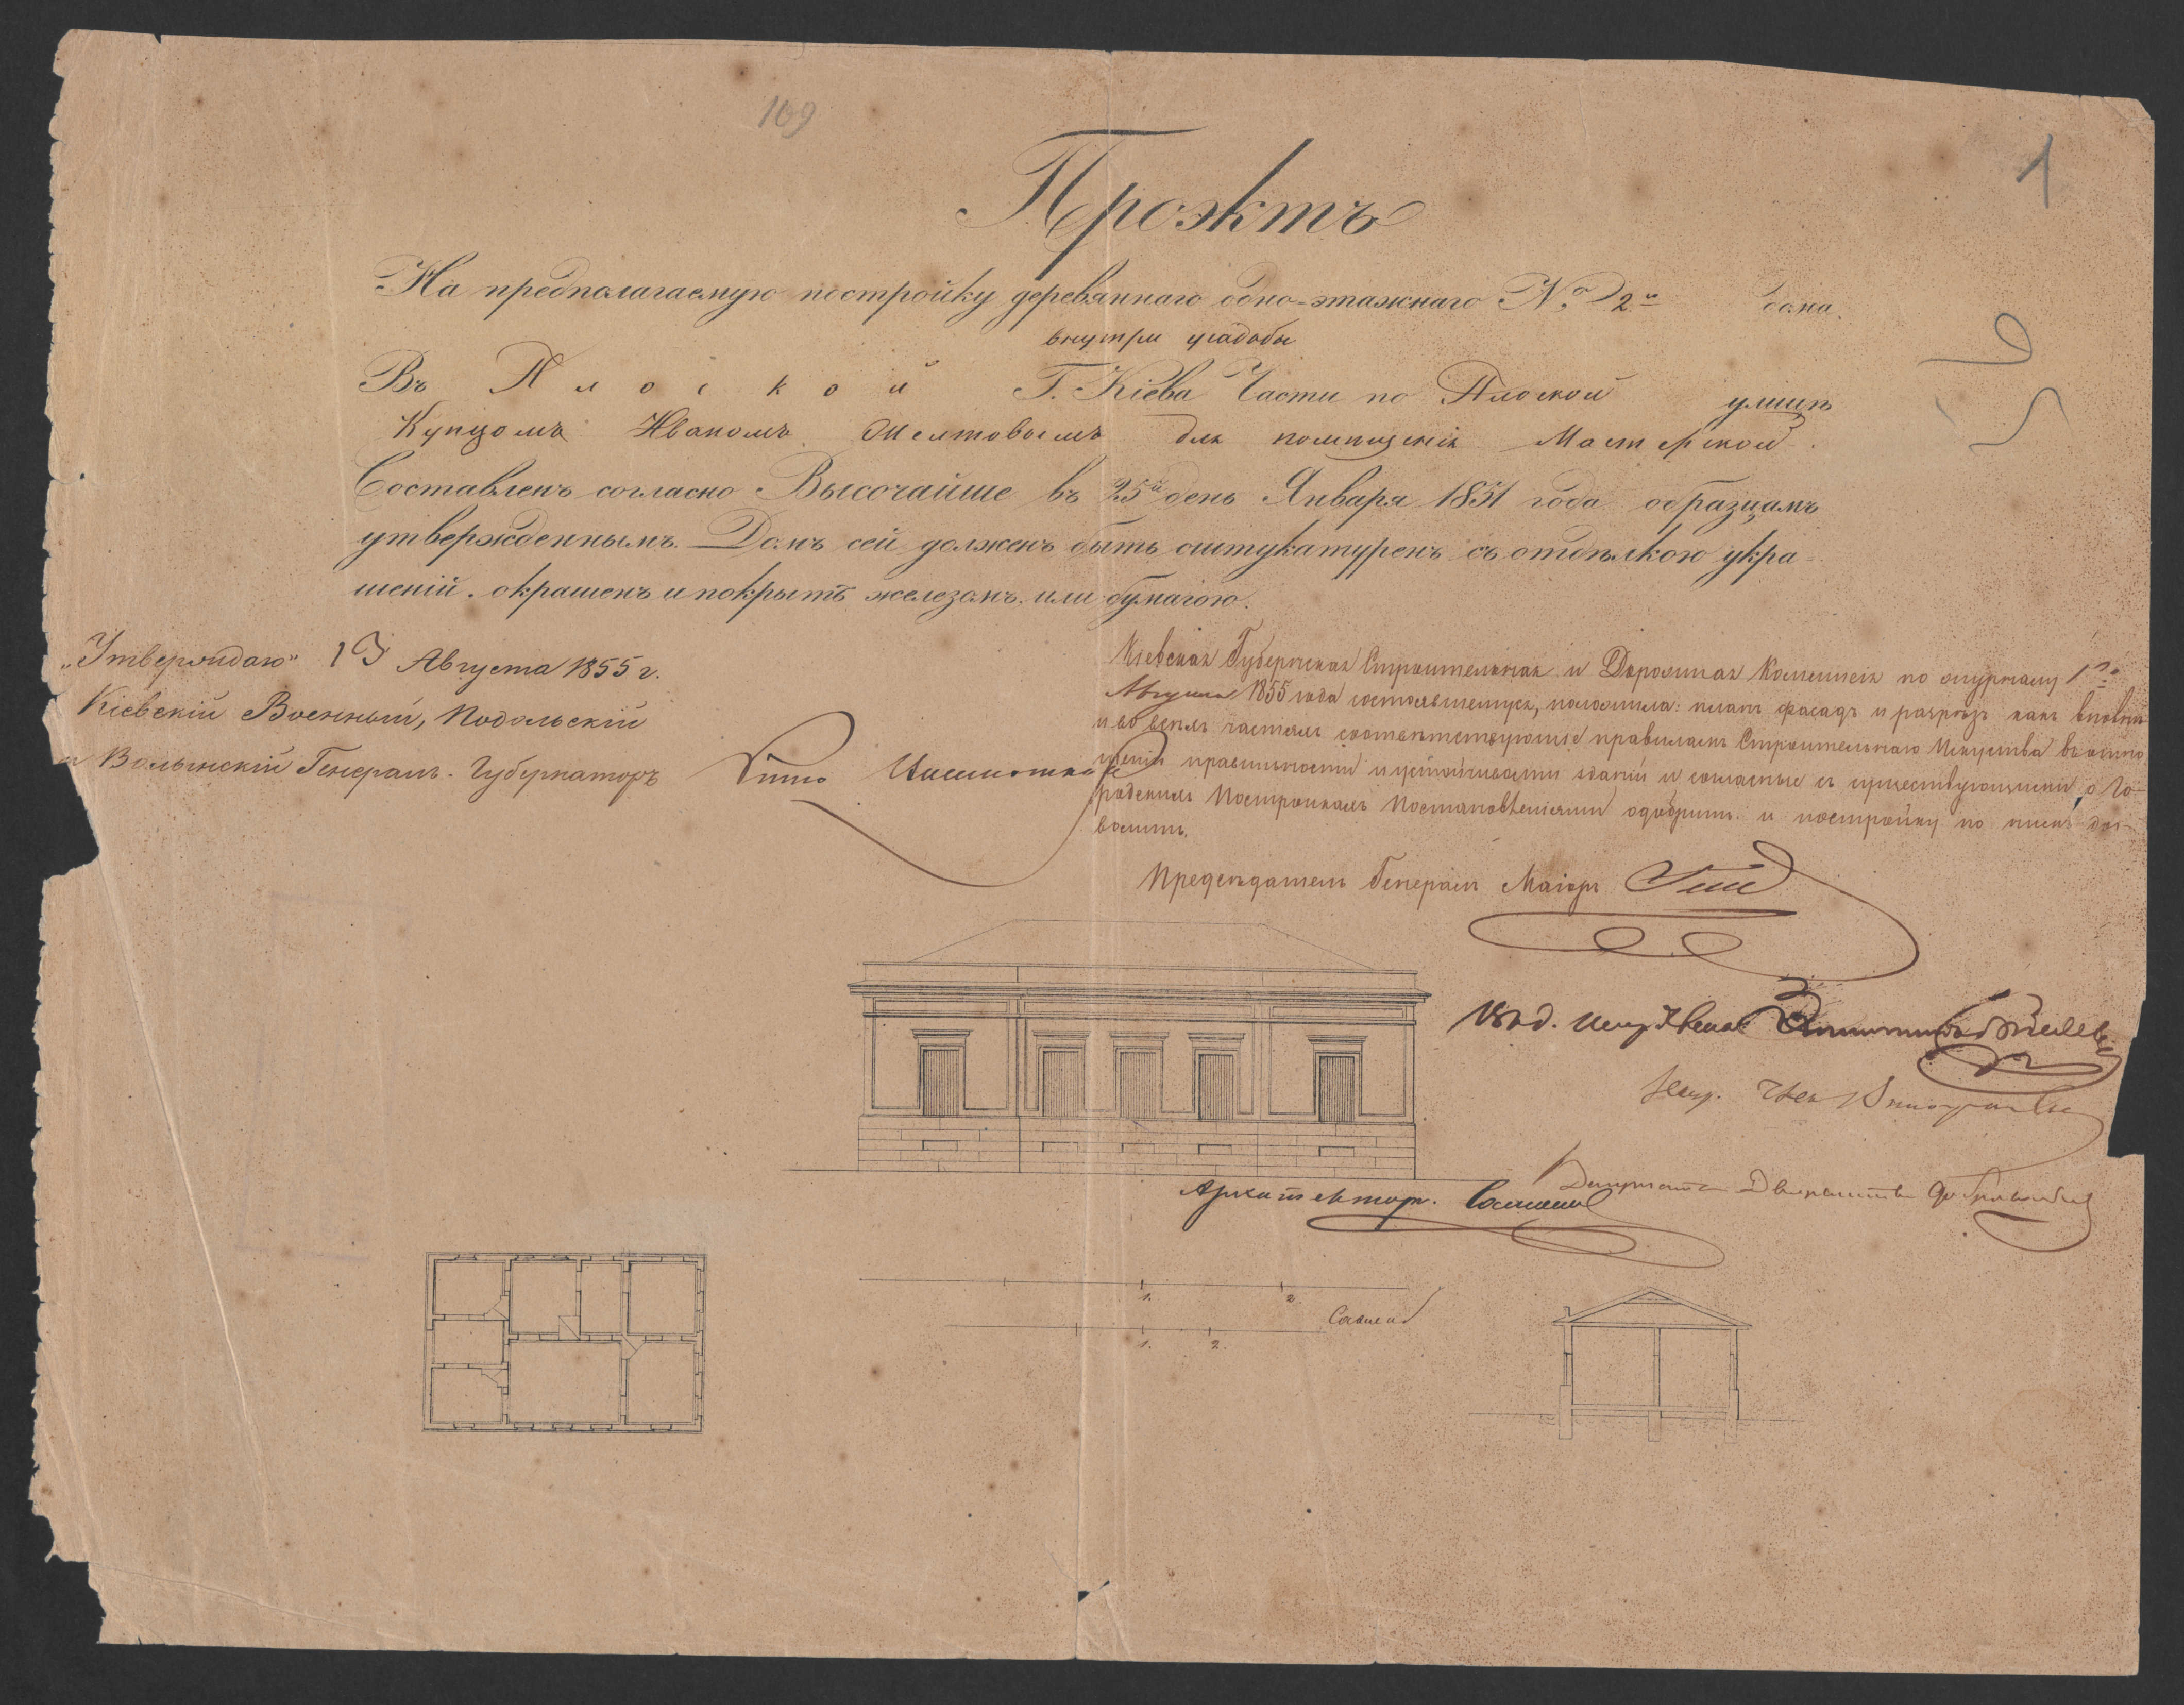 109
1
Проэктъ
На предполагаемую постройку деревяннаго одно-этажнаго № 2й дома.
внутри усадьбы
Въ Плоской Г. Кіева Части по Плоской улицѣ
Купцомъ Иваномъ Желтовымъ для помѣщенія Мастерской.
Составленъ согласно Высочайше въ 25й день Января 1851 года образцамъ
утвержденнымъ. Домъ сей долженъ быть оштукатуренъ съ отдѣлкою укра-
шеній. окрашенъ и покрытъ железомъ. или бумагою.
„Утверждаю“ 13 Августа 1855 г.
Кіевскій Военный, Подольскій
и Волынскій Генералъ-Губернаторъ
Кіевская Губернская Строительная и Дорожная Коммисія по журналу 1го
Августа 1855 года состоявшемуся, положила: планъ фасадъ и разрѣзъ какъ вполнѣ
и во всѣхъ частяхъ соотвѣтствующіе правиламъ Строительнаго Искуства въ отно-
шеніи правильности и устойчивости зданій и согласные съ существующими о Го-
родскихъ Постройкахъ Постановленіями одобрить. и постройку по нимъ доз-
волить.
Предсѣдатель Генералъ Маіоръ
Архитекторъ.
Депутатъ Дворянства
1. 2.
Сажень
1. 2.